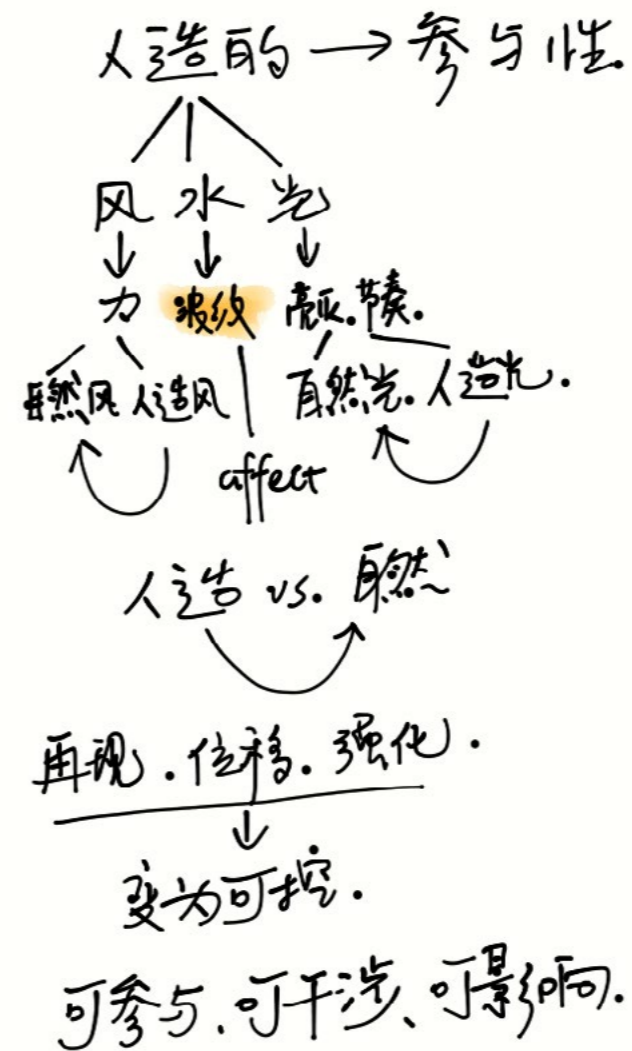 人造的 → 参与性.
风 水 光
力 波纹 亮灭.节奏.
自然风 人造风 自然光.人造光.
affect
人造 vs. 自然
再现.位移.强化.
变为可控.
可参与、可干涉、可影响.